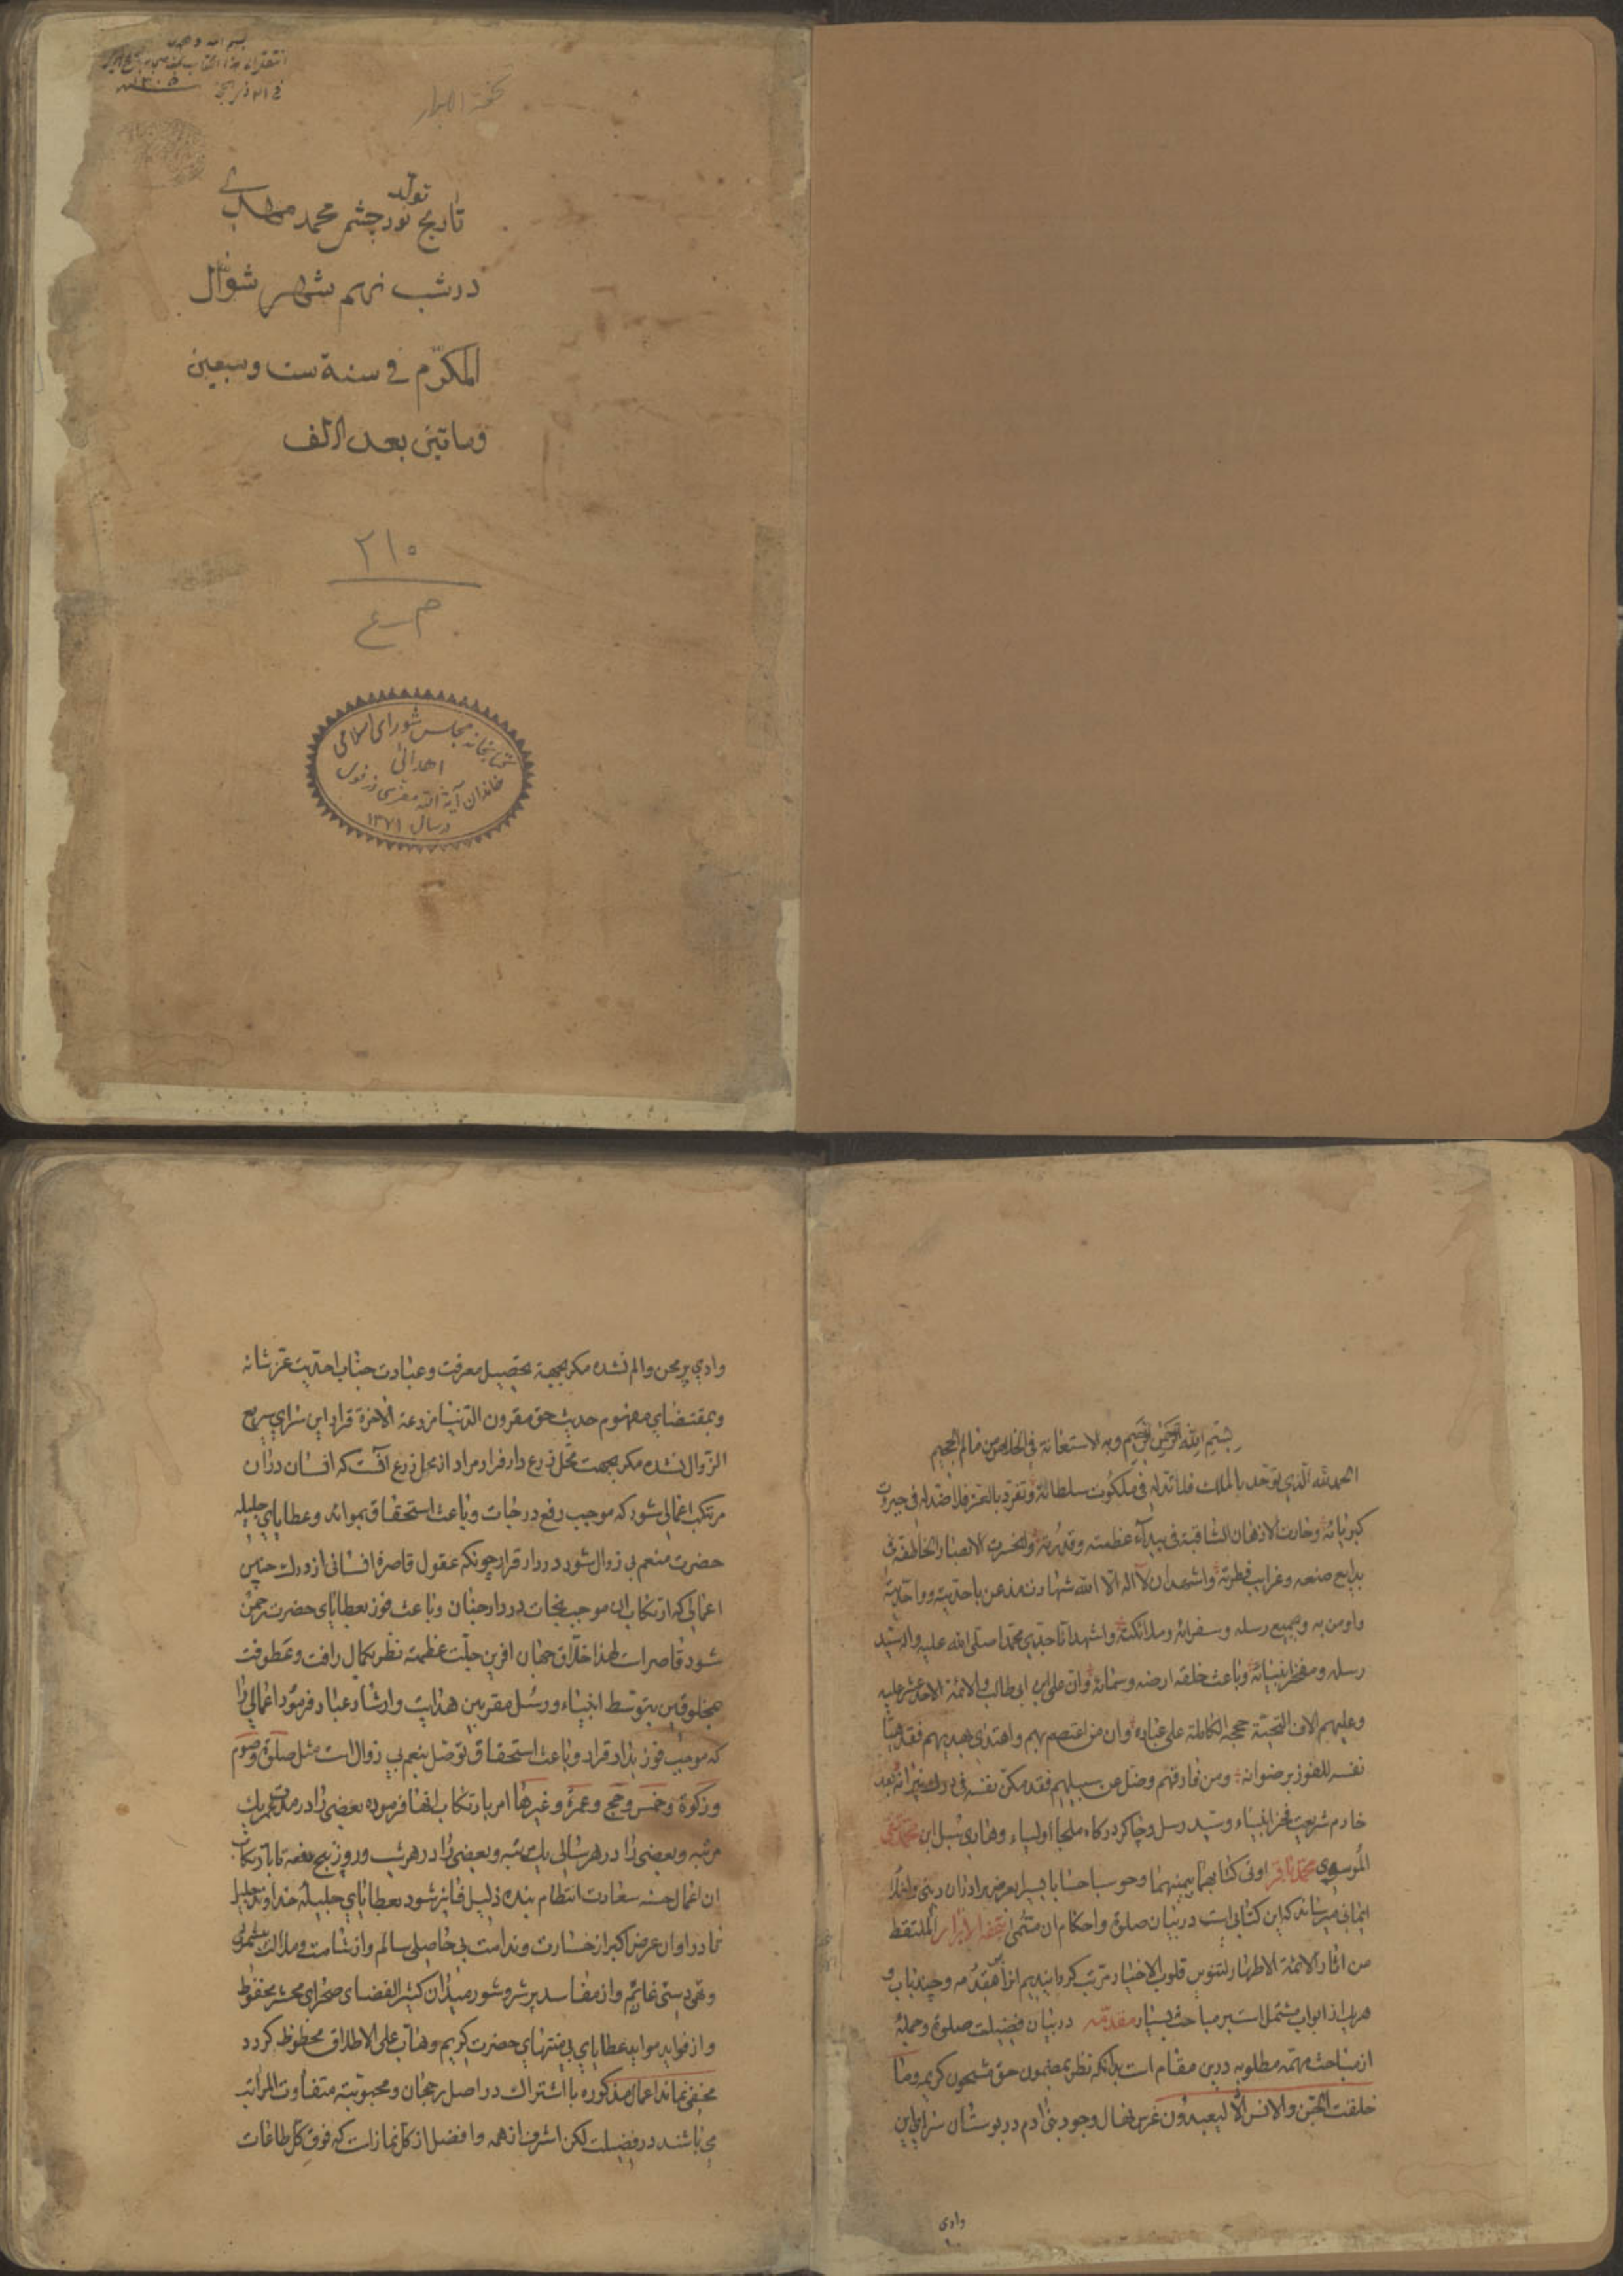 بسم الله و
انتقل الی هذا الکتاب
فی ۲۱ ذی الحجة ۱۳۰۵
تحفة الابرار
تولد
تاریخ نورچشم محمد مهدی
در شب نهم شهر شوال
المکرّم فی سنة ست و سبعین
و ماتین بعد الالف
۲۱۰
م ع
کتابخانه مجلس شورای اسلامی
اهدائی
خاندان آیة الله
در سال ۱۳۷۱
بسم الله الرحمن الرحیم و به الاستعانة فی الخلاص من
الحمد لله الذی توحّد بالملک فلا ندّ له فی ملکوت سلطانه و تفرّد بالعز فلا ضدّ له فی جبروت
کبریائه و حارت الاذهان الثاقبة فی بیداء عظمته و قدرته و انحسرت الابصار الخاطفة فی
بدایع صنعه و غرایب فطرته و اشهد ان لا اله الا الله شهادت مذعن باحدیته و واحدیته
و اومن به و بجمیع رسله و سفرائه و ملائکته و اشهد انّ جدّی محمدا صلی الله علیه و اله سیّد
رسله و مفخر انبیائه و باعث خلقه ارضه و سمائه و ان علی ابن ابی طالب و الائمة الاحد عشر علیه
و علیهم الاف التحیّة حججه الکاملة علی عباده و ان من اعتصم بهم و اهتدی بهدیهم فقد هیّأ
نفسه للفوز برضوانه و من فارقهم و ضل عن سبیلهم فقد مکّن نفسه فی درک نیرانه بعد
خادم شریعت فخر انبیاء و سید رسل و چاکر درکاه ملجأ اولیاء و هادی سبل ابن محمد نقی
الموسوی محمد باقر اوتی کتابهما بیمینهما و حوسبا حسابا یسیرا بعرض برادران دینی و اخلاء
ایمانی میرساند که این کتابی است در بیان صلوة و احکام ان مسمّی بتحفة الابرار الملتقط
من اثار الائمة الاطهار لتنویر قلوب الاخیار مرتب کردانیدیم انرا بر مقدمه و چند باب و
هر باب از ابواب مشتمل است بر مباحث بسیار مقدّمه در بیان فضیلت صلوة و جمله
از مباحث مهمّه مطلوبه در این مقام است بدانکه نظر بمضمون حق مشحون کریمه و ما
خلقت الجن و الانس الا لیعبدون غرس نهال وجود بنی ادم در بوستان سرای این
وادی
وادی پر محن و الم نشده مکر بجهة تحصیل معرفت و عبادت جناب احدیت عزّ شانه
و بمقتضای مفهوم حدیث حق مقرون الدنیا مزرعة الاخرة قرار این سرای سریع
الزوال نشده مکر بجهت محل زرع دار قرار مراد از محل زرع آنست که انسان در ان
مرتکب اعمالی شود که موجب رفع درجات و باعث استحقاق بموائد و عطایای جلیله
حضرت منعم بی زوال شود در دار قرار چونکه عقول قاصرهٔ انسانی از درک چنین
اعمالی که ارتکاب ان موجب نجات در دار جنان و باعث فوز بعطایای حضرت رحمن
شود قاصر است لهذا خلاق جهان افرین جلّت عظمته نظر بکمال رافت و عطوفت
بمخلوقین بتوسط انبیاء و رسل مقربین هدایت و ارشاد عباد فرمود اعمالی را
که موجب فوز بدار قرار و باعث استحقاق تفضل بنعم بی زوال است مثل صلوة و صوم
و زکوة و خمس و حج و عمره و غیرها امر بارتکاب انها فرموده بعضی را در مدت عمر یک
مرتبه و بعضی را در هر سالی یک مرتبه و بعضی را در هر شب و روز پنج دفعه تا بارتکاب
ان اعمال حسنه سعادت انتظام بنده ذلیل فایز شود بعطایای جلیلهٔ خداوند جلیل
تا در اوان عرض اکبر از خسارت و ندامت بی حاصلی سالم و از شامت و ملالت
و تهی دستی غانم و از مفاسد پر شر و شور میدان کثیر الفضای صحرای محشر محفوظ
و از فواید مواید عطایای بی منتهای حضرت کریم وهّاب علی الاطلاق محظوظ کردد
مخفی نماند اعمال مذکوره با اشتراک در اصل رجحان و محبوبیّت متفاوت المراتب
می باشند در فضیلت لکن اشرف از همه و افضل از کل نماز است که فوق کل طاعات